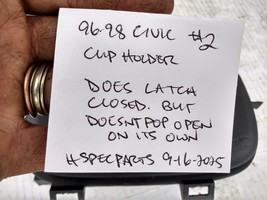 96-98 CIVIC #2
CUP HOLDER
DOES LATCH
CLOSED. BUT
DOESNT POP OPEN
ON ITS OWN
#SPECPARTS 9-16-2025